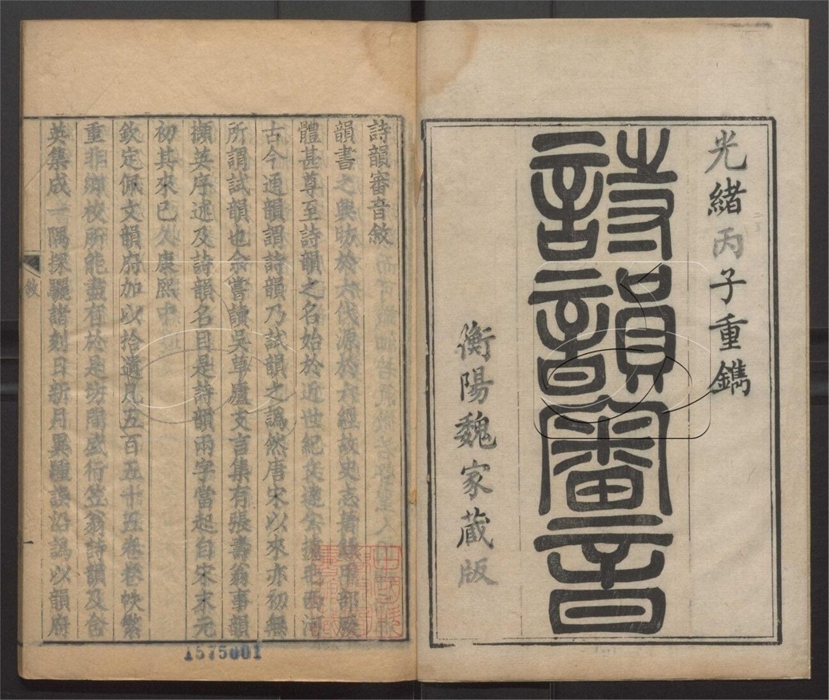 光緒丙子重鐫
詩韻審音
衡陽魏家藏版
詩韻審音敘
韻書之興昉於六代源於六經故史志著錄甲部厥
體甚尊至詩韻之名始於近世紀文達公據毛西河
古今通韻謂詩韻乃試韻之譌然唐宋以來亦初無
所謂試韻也余嘗讀吳草廬支言集有張壽翁事韻
擷英序述及詩韻名目是詩韻兩字當起自宋末元
初其來已久康熙中
欽定佩文韻府加以拾遺凡五百五十五卷卷帙繁
重非鄉校所能盡有於是坊間盛行笠翁詩韻及含
英集成一隅探驪諸刻日新月異踵誤沿譌以韻府
敘
1575001